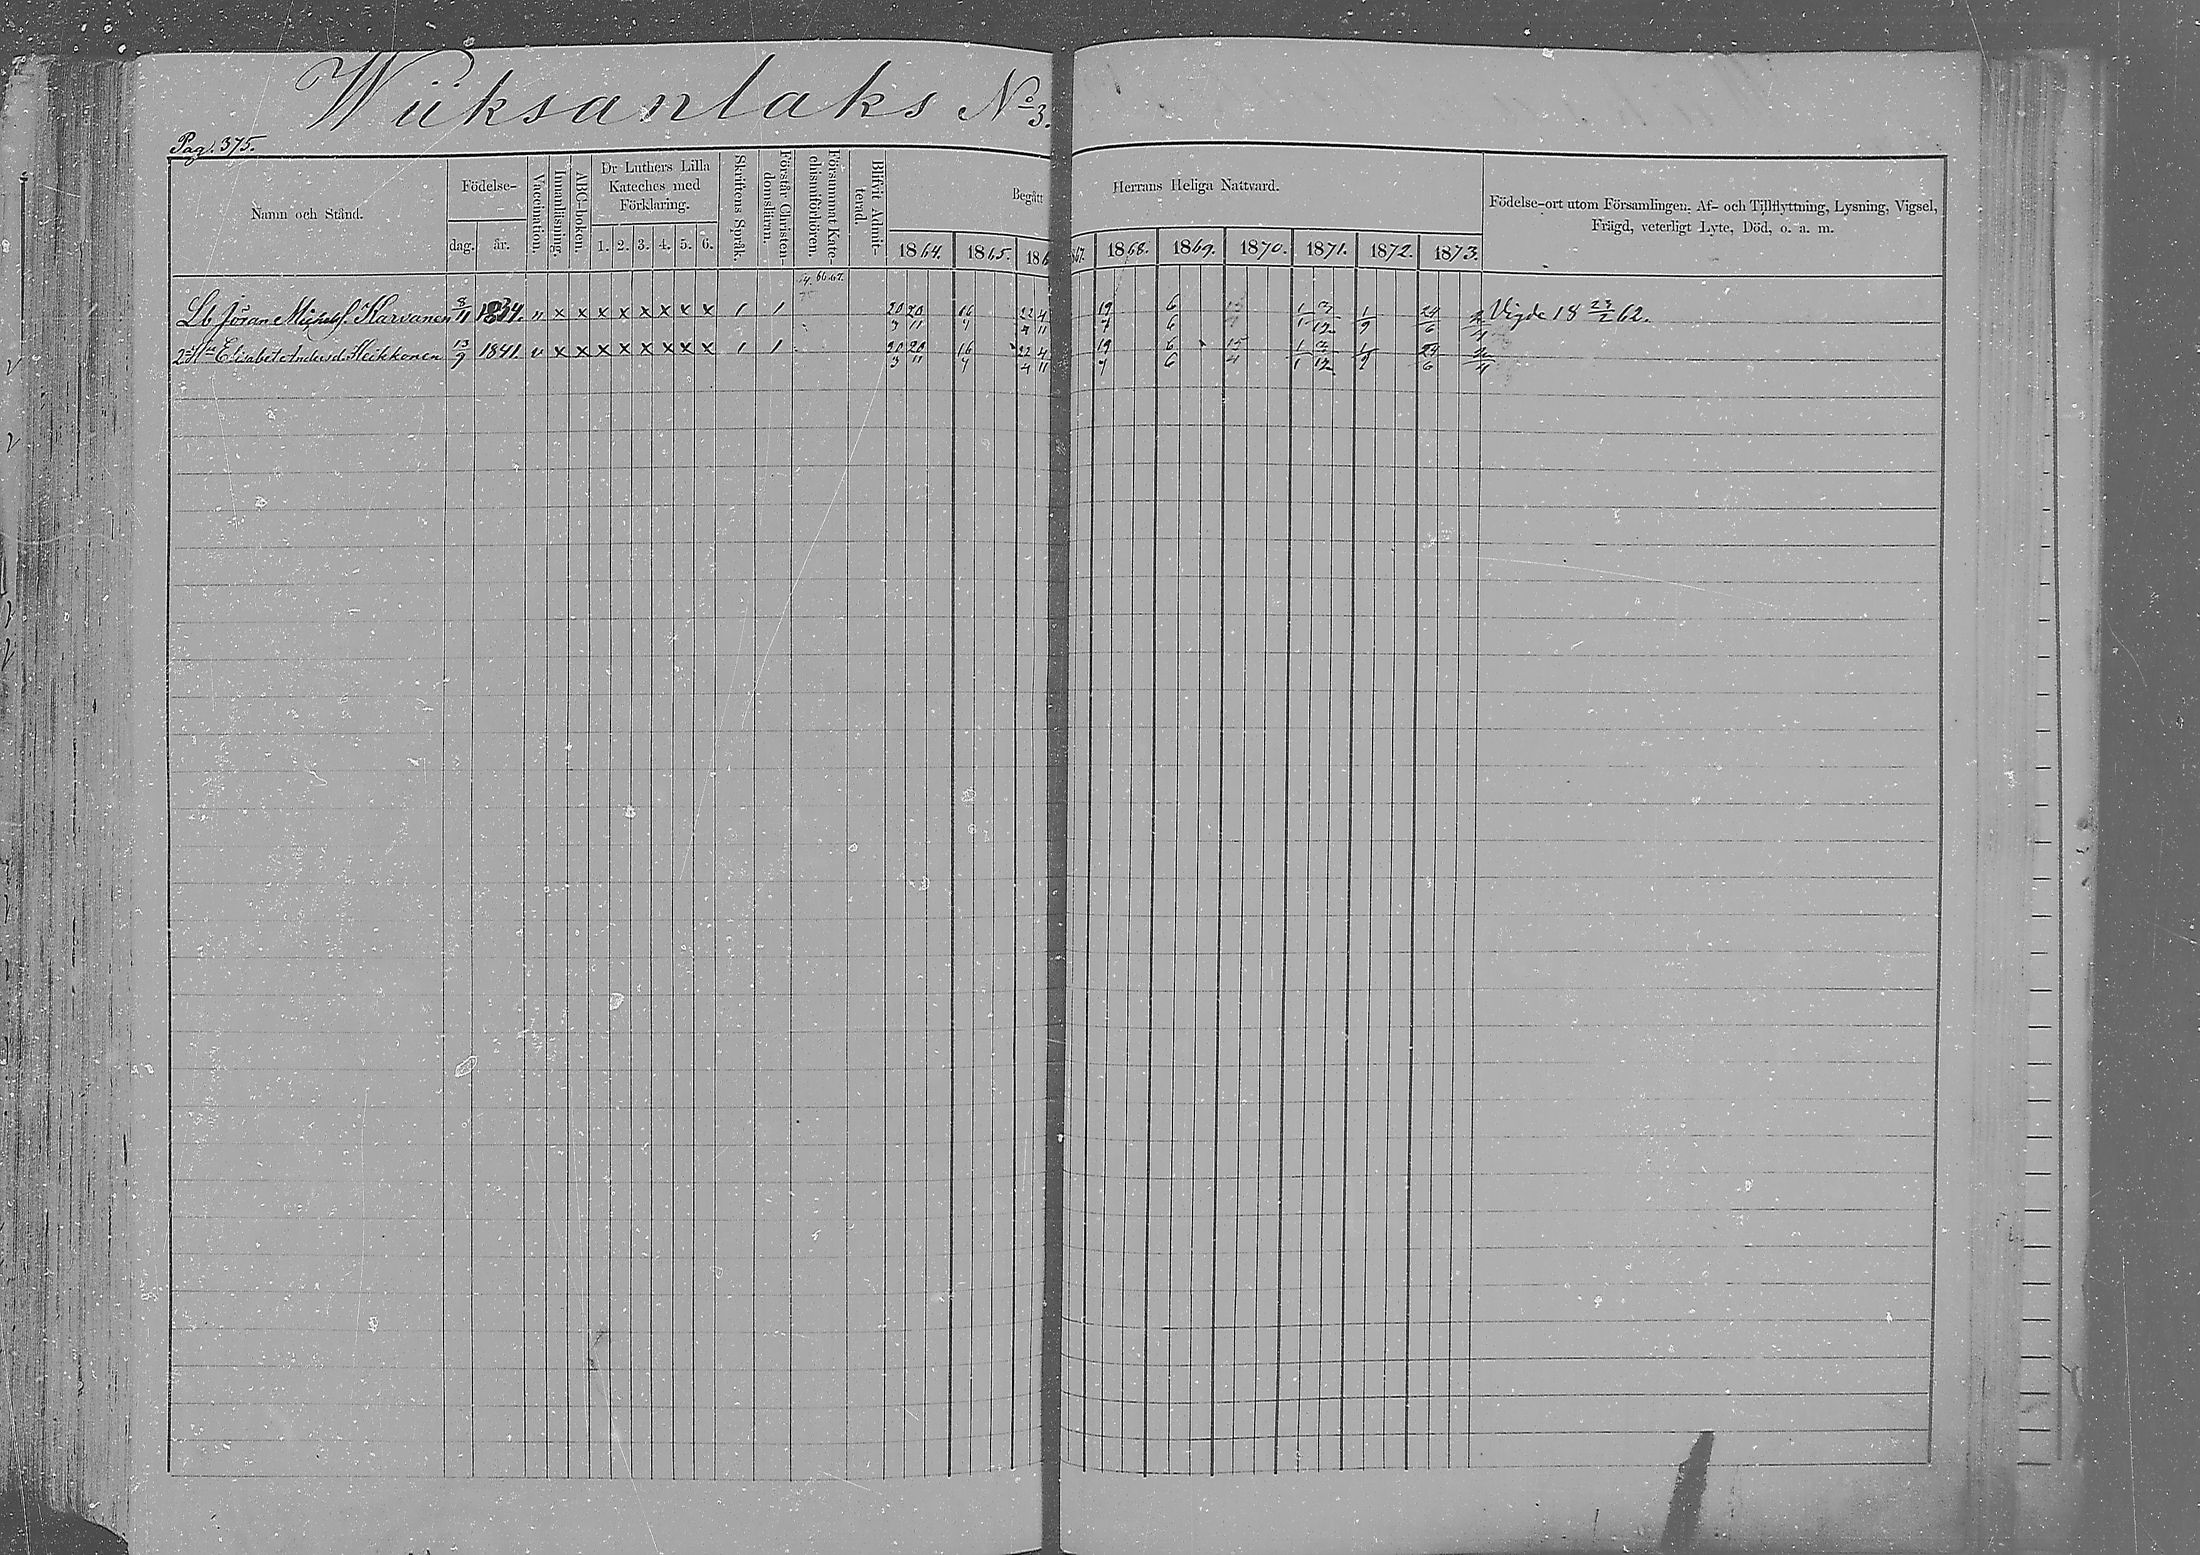 Wiiksanlaks No 3.
Pag. 375.
Namn och Stånd.
Födelse-
dag. år.
Vaccination.
Innanläsning.
ABC-boken.
Dr Luthers Lilla
Kateches med
Förklaring.
1. 2. 3. 4. 5. 6.
Skriftens Språk.
Förstår Christen-
domsläran.
Försummat Kate-
chismiförhören.
Blifvit Admit-
terad.
Begått Herrans Heliga Nattvard.
1864. 1865. 186 67. 1868. 1869. 1870. 1871. 1872. 1873.
Födelse-ort utom Församlingen, Af- och Tillflyttning, Lysning, Vigsel,
Frägd, veterligt Lyte, Död, o. a. m.
66.67.
Lb. Jöran Michelsf. Karvanen 8/11 1834. v x x x x x x x x 1 1 20/3 20/11 16/4 22/4 4/11 19/4 6/6 15/4 1/1 3/12 1/9 24/6 Vigde 18 23/2 62.
2 H. Elisabet Andersd. Heikkonen 13/9 1841. v x x x x x x x x 1 1 20/3 20/11 16/4 22/4 4/11 19/4 6/6 15/4 1/1 3/12 1/9 24/6